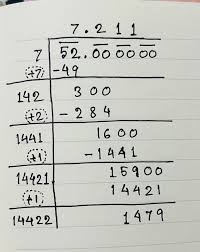 7.211
7 52.000000
+7 -49
142 300
+2 -284
1441 1600
+1 -1441
14421 15900
+1 14421
14422 1479